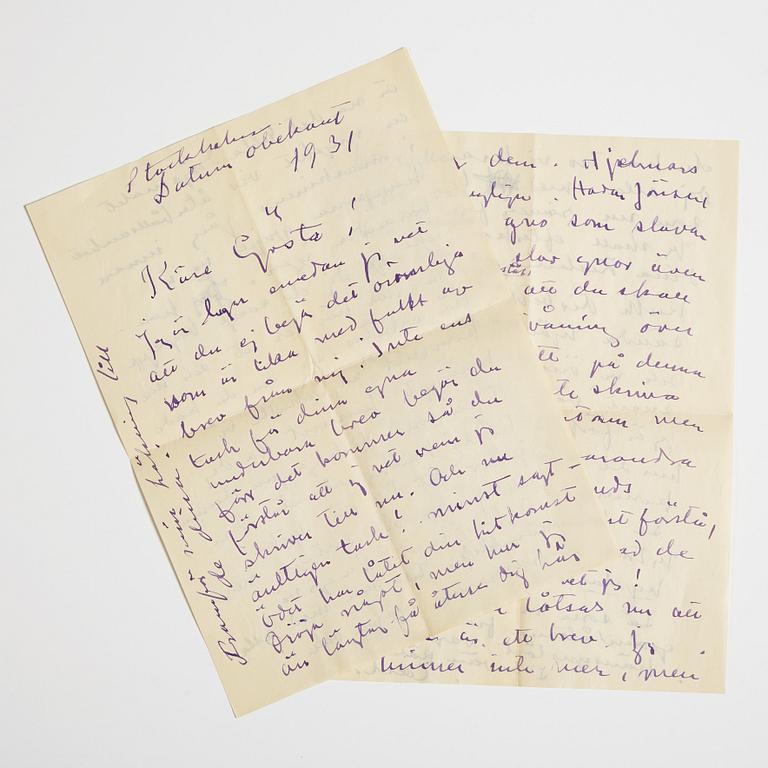 Stockholm
Datum obekant
1931
Käre Gösta!
Jag är lugn emedan jag vet
att du ej begär det orimliga
som är likta med fullt av
brev från mig. Inte ens
tack för dina egna
underbara brev begär du
Därr det kommer så du
förstår att jag vet vem jag
skriver till nu. Och nu
äntligen tack! minst sagt –
ödet har låtit din hitkomst
dröja något, men hur jag
än längtar få återse dig här
Framför min hälsning till
de dina!
dem. Hjelmars
Hadar Jönzén
gno som slavar
slav gnor även
att du skall
våning över
på denna
skriva
men
varandra
förstå,
de
vet jag!
låtsas nu att
är ett brev. Jag
hinner inte mer, men